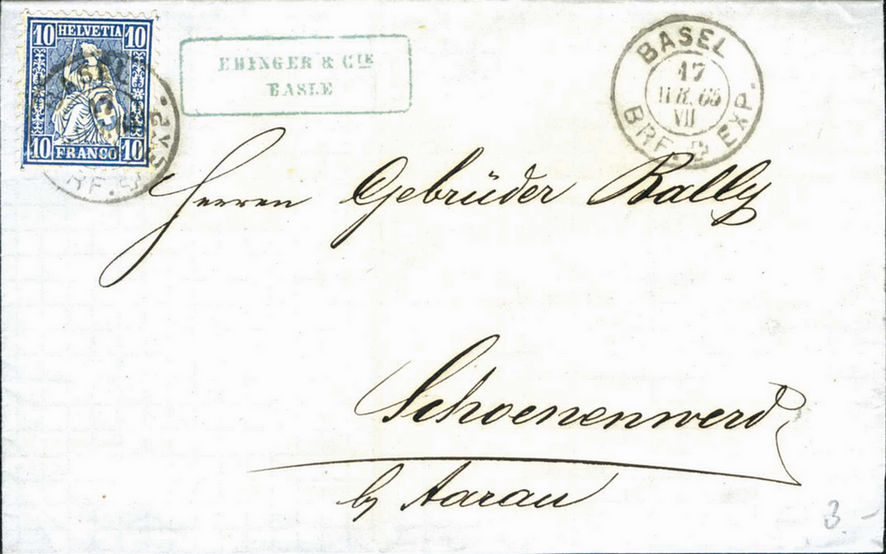 10 HELVETIA 10
10 FRANCO 10
EHINGER & CIE
BASLE
BASEL
17
65
VII
BRF. EXP.
Herren Gebrüder Bally
Schoenenwerd
by Aarau
3 -